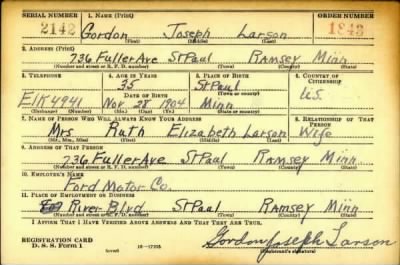 SERIAL NUMBER 1. NAME (Print) ORDER NUMBER
2142 Gordon Joseph Larson 1843
(First) (Middle) (Last)
2. ADDRESS (Print)
736 Fuller Ave St Paul Ramsey Minn
(Number and street or R. F. D. number) (Town) (County) (State)
3. TELEPHONE 4. AGE IN YEARS 5. PLACE OF BIRTH 6. COUNTRY OF CITIZENSHIP
35 St Paul
DATE OF BIRTH
Elk 4941 Nov 28 1904 Minn U.S.
(Exchange) (Number) (Mo.) (Day) (Yr.) (State or country)
7. NAME OF PERSON WHO WILL ALWAYS KNOW YOUR ADDRESS 8. RELATIONSHIP OF THAT PERSON
Mrs Ruth Elizabeth Larson Wife
(Mr., Mrs., Miss) (First) (Middle) (Last)
9. ADDRESS OF THAT PERSON
736 Fuller Ave St Paul Ramsey Minn
(Number and street or R. F. D. number) (Town) (County) (State)
10. EMPLOYER'S NAME
Ford Motor Co.
11. PLACE OF EMPLOYMENT OR BUSINESS
River Blvd St Paul Ramsey Minn
(Number and street or R. F. D. number) (Town) (County) (State)
I AFFIRM THAT I HAVE VERIFIED ABOVE ANSWERS AND THAT THEY ARE TRUE.
REGISTRATION CARD
D. S. S. Form 1 Gordon Joseph Larson
(Registrant's signature)